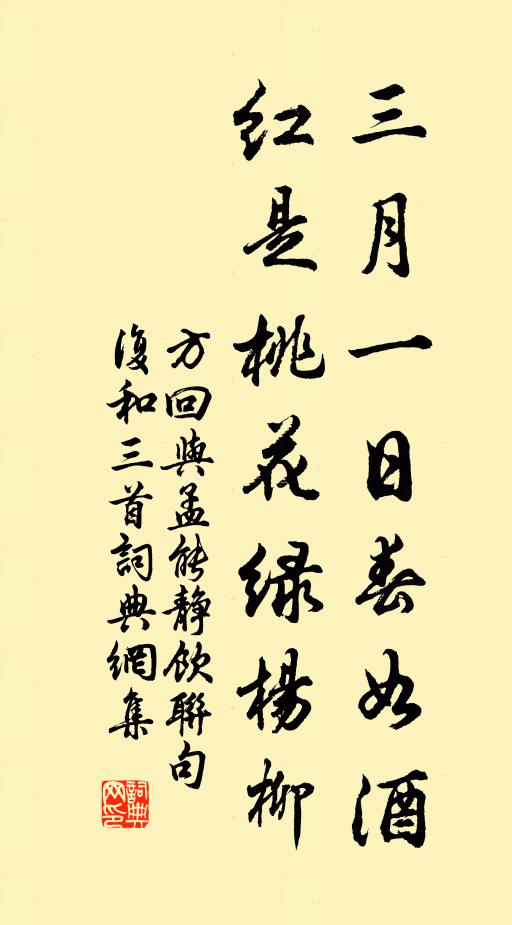 三月一日春如酒
红是桃花绿杨柳
方回與孟能静飲聯句
復和三首詞典網集
詞典网印